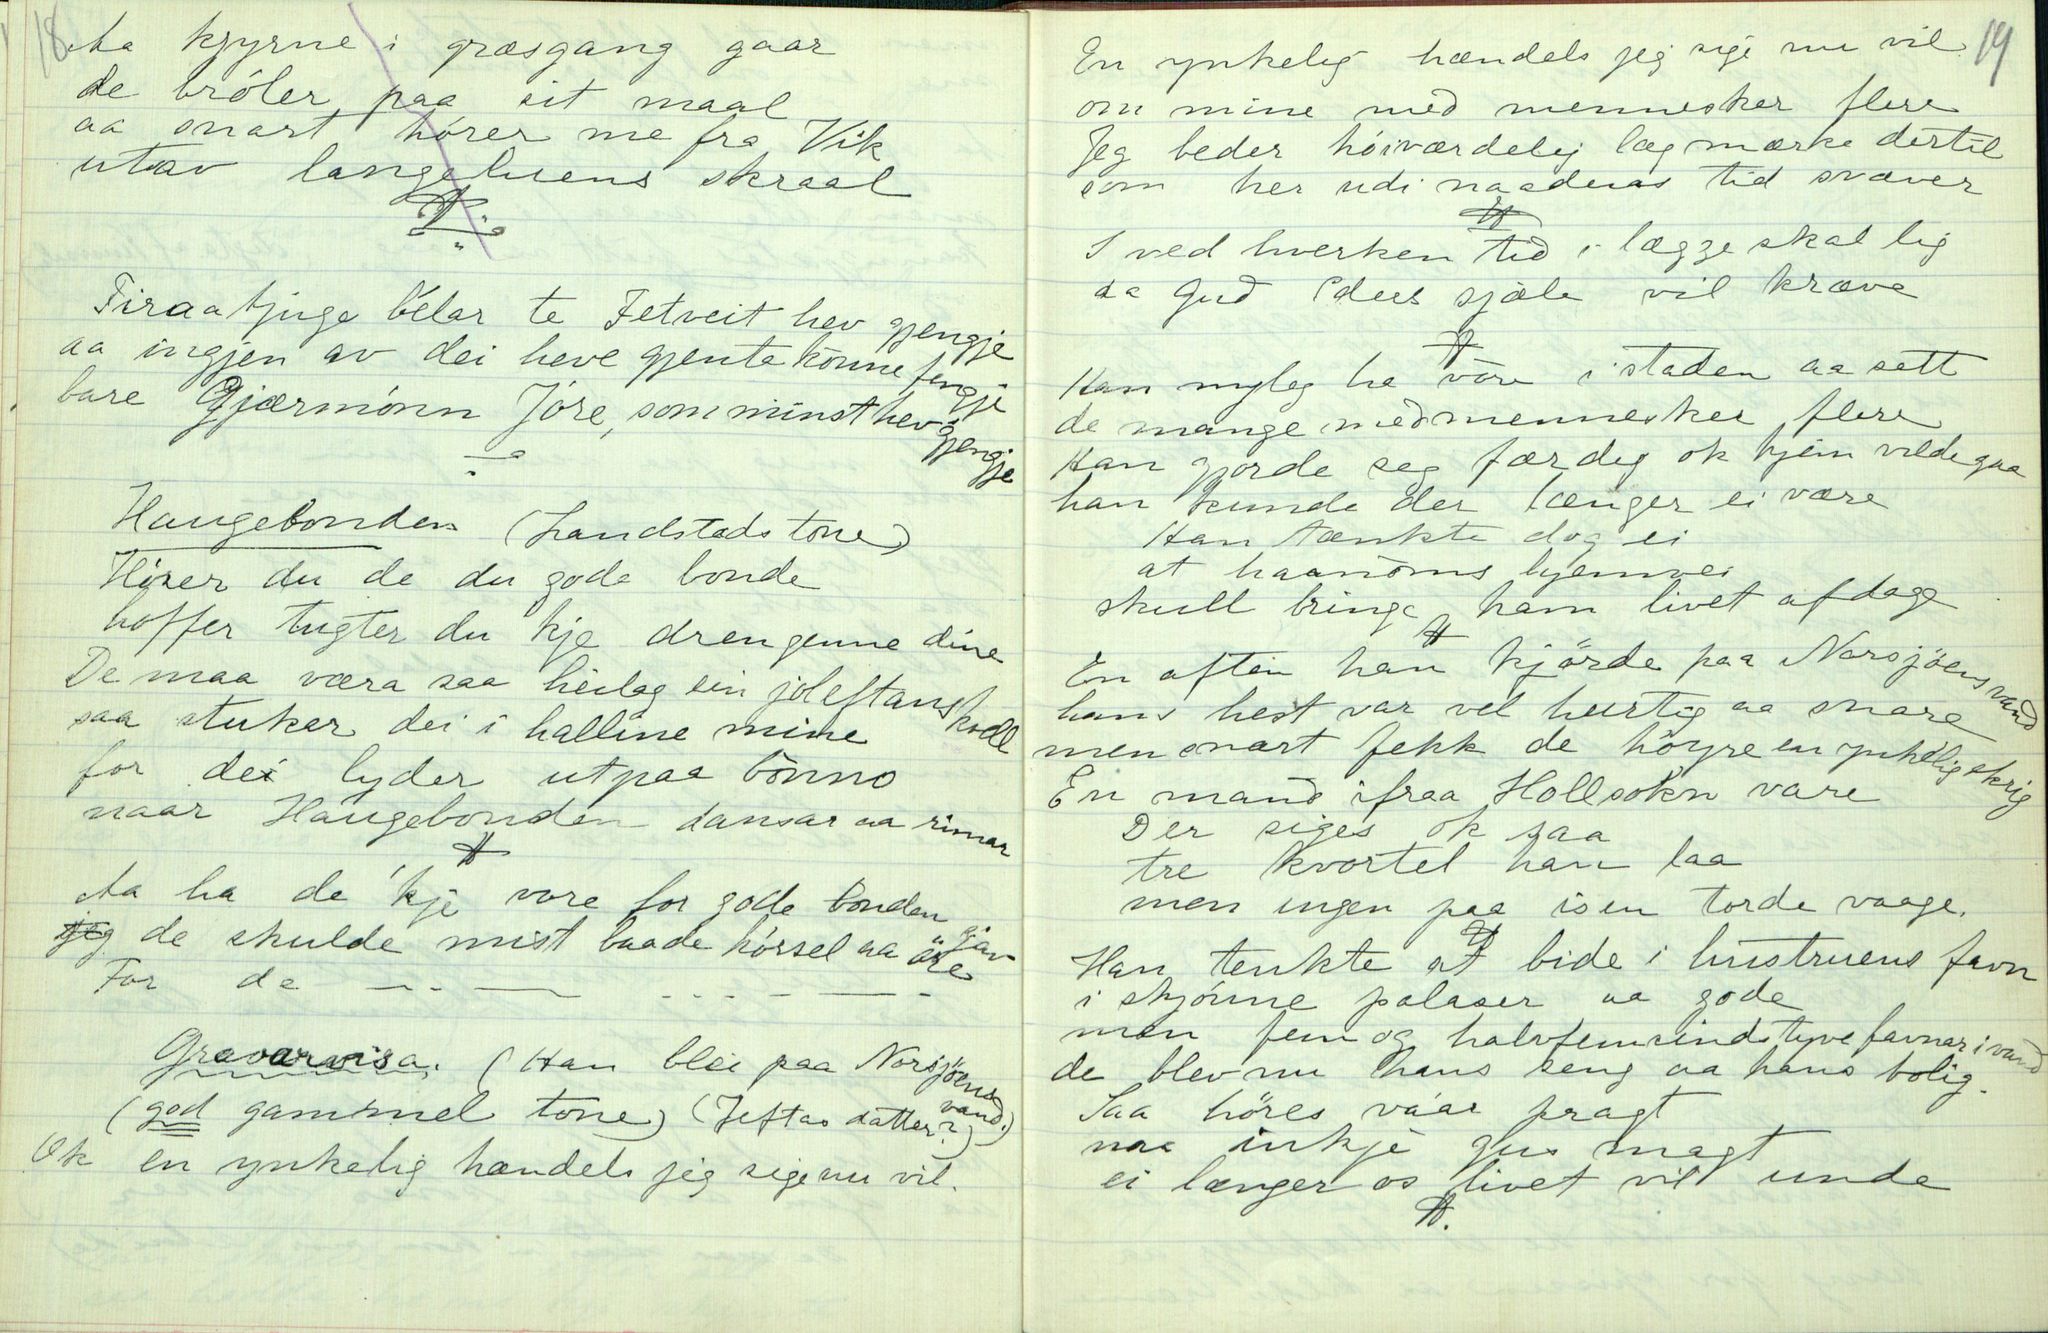 18
Aa kjyrne i græsgang gaar
de bröler paa sit maal
aa snart hörer me fra Vik
utav langeluens skraal
Firaatjuge bêlar te Fetveit hev gjengje
aa ingjen av dei heve gjenta könne fengje
bare Gjærmönn Jöre, som minst hev gjengje
Haugebonden (Landstads tone)
Hörer du de du gode bonde
hoffer tugter du kje drengenne dine
De maa væra saa heilag ein joleftans kvell
saa stuker dei i halline mine
for dei lyder utpaa bönno
naar Haugebonden dansar aa rimar
Aa ha de 'kje vore for gode bonden gjæv
jeg de skulde mist baade hörsel aa äre
For de
Gravarvisa. (Han blei paa Norsjöens vand.)
(god gammel tone) (Jeftas datter?)
Ok en ynkelig hændels jeg sige nu vil.
19
En ynkelig hændels jeg sige nu vil
om mine med mennesker flere
Jeg beder höiværdelig læg mærke dertil
som her udi naadens tid svæver
I ved hverken tid i lægge skal lig
aa Gud Eders sjæle vil kræve
Han myleg ha vöre i staden aa sett
de mange medmennesker flere
Han gjorde seg færdeg ok hjem vilde gaa
han kunde der længer ei være
Han tænkte dog ei
at haanöms hjemvei
skull bringe ham livet af dage
En aften han kjörde paa Norsjöens vand
hans hest var vel hurtig aa snare
men snart fekk de höyre en ynkelig skrig
En mand ifraa Hollsokn vare
Der siges ok saa
tre kvortel han laa
men ingen paa isen torde vaage.
Han tenkte at bide i hustruens favn
i skjönne palaser aa gode
men fem og halvfemsindstyve favnar i vand
de blev nu hans seng aa hans bolig.
Saa höres vaar pragt
naa inkje Gus magt
ei længer os livet vil unde